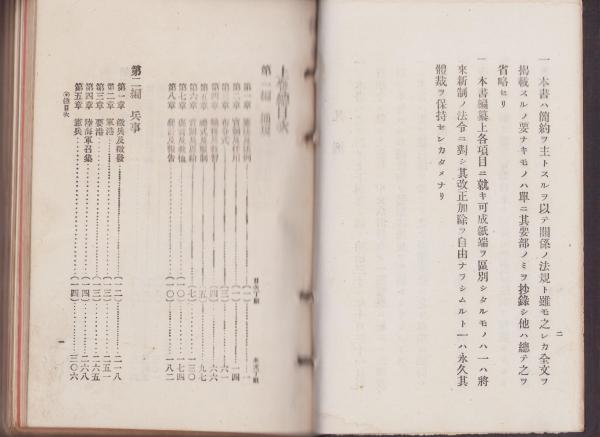 一 本書ハ簡約ヲ主トスルヲ以テ關係ノ法規ト雖モ之レカ全文ヲ
揭載スルノ要ナキモノハ單ニ其要部ノミヲ抄錄シ他ハ總テ之ヲ
省略セリ
一 本書編纂上各項目ニ就キ可成紙端ヲ區別シタルモノハ一ハ將
來新制ノ法令ニ對シ其改正加除ヲ自由ナラシムルト一ハ永久其
體裁ヲ保持センカタメナリ
二
上卷
第一編
第一章 (一) 一
第二章 (一) 一四
第三章 (三) 六一
第四章 (四) 六六
第五章 (五) 九七
第六章 (七) 一三〇
第七章 (一〇) 一七四
第八章 報告 (一〇) 一八二
第二編 兵事
第一章 徵兵及徵發 (一二) 二一八
第二章 軍港 (一三) 二五一
第三章 要港 (一三) 二六五
第四章 陸海軍召集 (一四) 二六八
第五章 憲兵 (一四) 三〇六
一